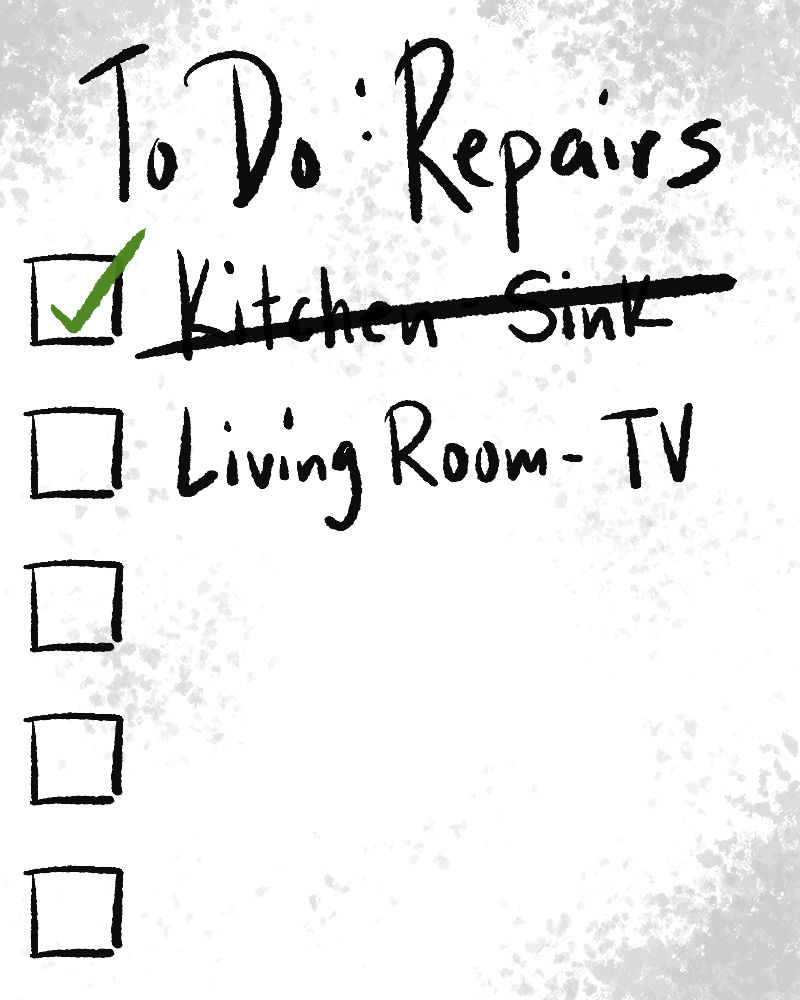 To Do: Repairs
Kitchen Sink
Living Room - TV